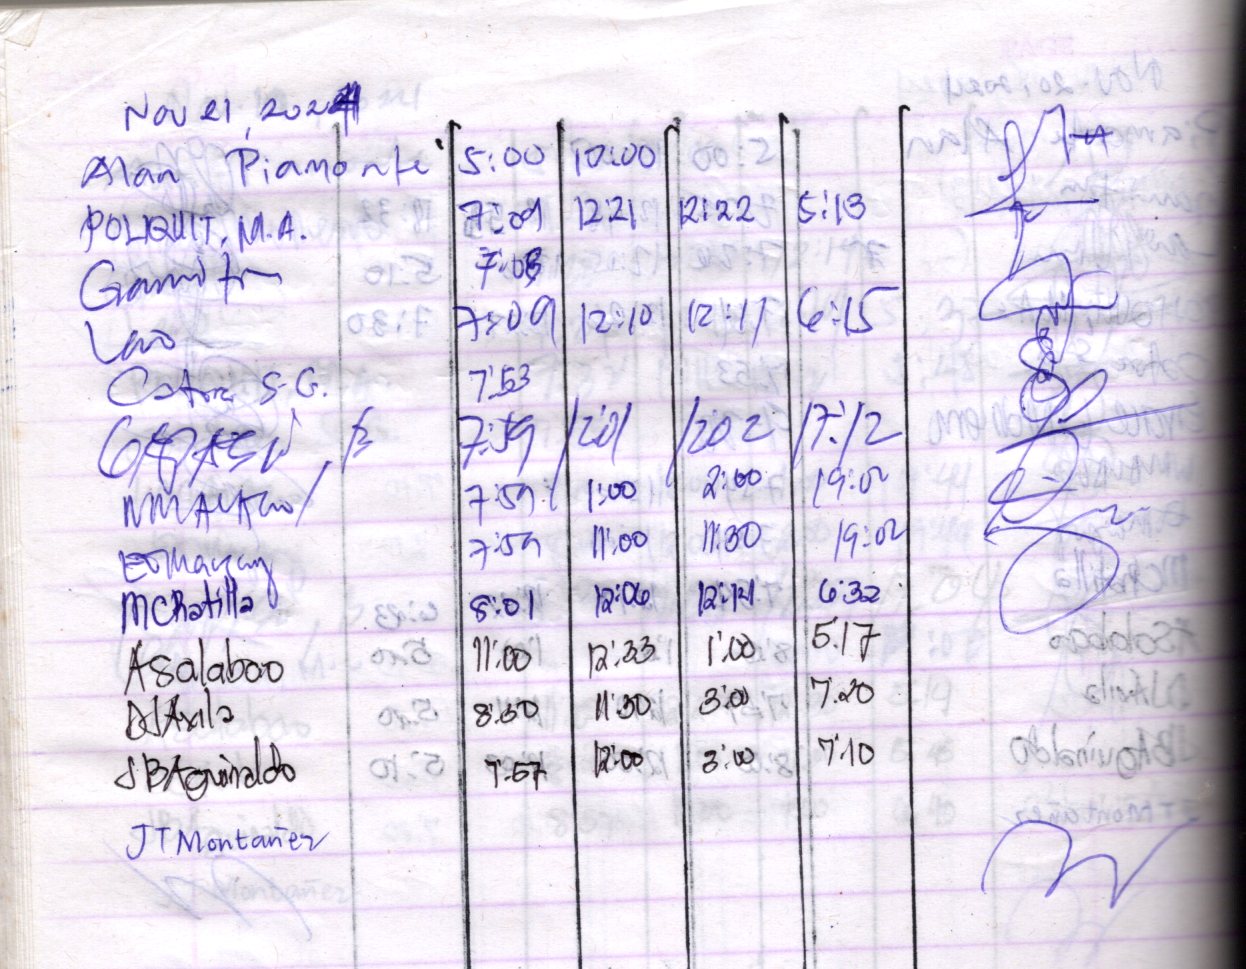 Nov 21, 2024
Alan Piamonte 5:00 10:00
POLIQUIT, M.A. 7:09 12:21 12:22 5:13
7:08
Lao 7:09 12:10 12:11 6:15
S.G. 7:53
7:59 1201 1202 17:12
7:59 1:00 2:00 19:02
7:59 11:00 11:30 19:02
MCRatilla 8:01 12:06 12:14 6:32
ASalabao 11:00 12:33 1:00 5:17
DJAvila 8:30 11:30 3:00 7:20
JBAguinaldo 7:57 12:00 3:00 7:10
JTMontañez